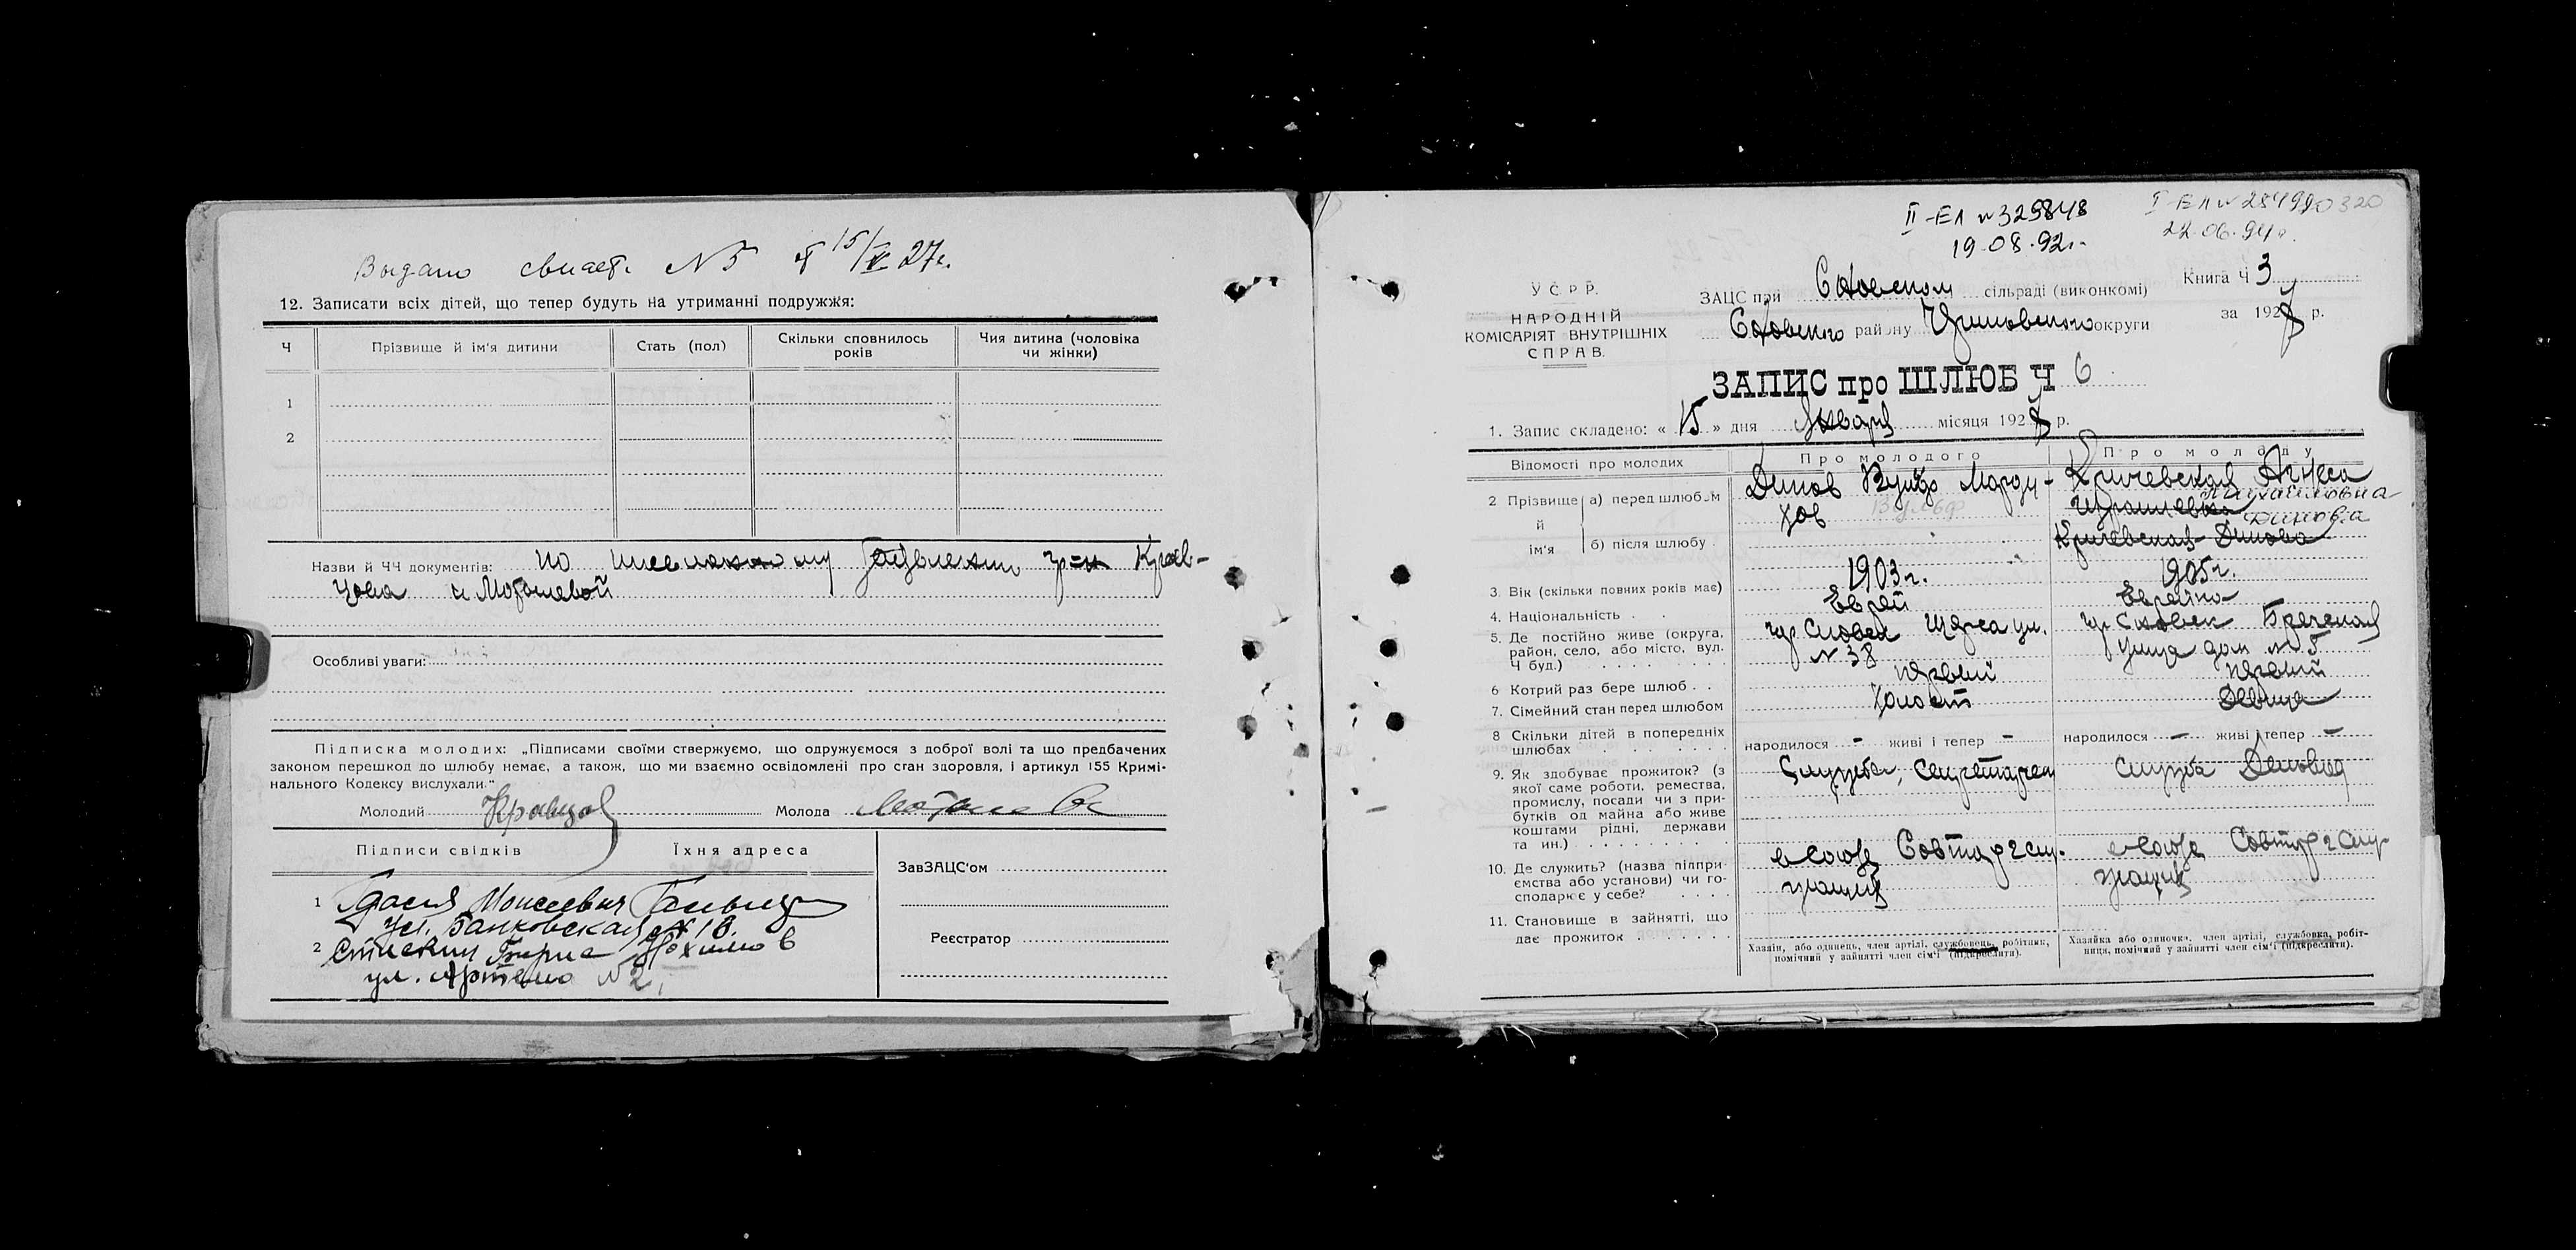 Выдано свидет. N 5 от 15/IV 27г.
12. Записати всіх дітей, що тепер будуть на утриманні подружжя:
Ч
Прізвище й ім'я дитини
Стать (пол)
Скільки сповнилось років
Чия дитина (чоловіка чи жінки)
1
2
Назви й ЧЧ документів: по
и
Особливі уваги:
Підписка молодих: „Підписами своїми стверджуємо, що одружуємося з доброї волі та що предбачених
законом перешкод до шлюбу немає, а також, що ми взаємно освідомлені про стан здоров'я, і артикул 155 Кримі-
нального Кодексу вислухали."
Молодий Кравцов Молода
Підписи свідків Їхня адреса
1 Моисеевич
ул. Банковская N 18.
2
ул. Артема N 2,
ЗавЗАЦС'ом
Реєстратор
II-ЕЛ N 329848
19.08.92г.
22.06.94г.
У С Р Р.
НАРОДНІЙ
КОМІСАРІЯТ ВНУТРІШНІХ
СПРАВ.
ЗАЦС при Сновском сільраді (виконкомі)
Сновского району округи
Книга Ч 3
за 1927 р.
ЗАПИС про ШЛЮБ Ч 6
1. Запис складено: « 15 » дня Января місяця 1927 р.
Відомості про молодих
Про молодого
Про молоду
2 Прізвище й ім'я
а) перед шлюбом
б) після шлюбу
Динов Вульф Морду-
хов
Вульф
Кричевская Агнеса
Израилевна Михайловна
Динова
Кричевская-Динова
3. Вік (скільки повних років має) 1903г. 1905г.
4. Національність Еврей Еврейка
5. Де постійно живе (округа,
район, село, або місто, вул.
Ч буд.)
гор Сновск Щорса ул.
N 38
гор Сновск
улица дом N 5
6 Котрий раз бере шлюб первый первый
7. Сімейний стан перед шлюбом холост девица
8 Скільки дітей в попередніх
шлюбах
народилося - живі і тепер -
народилося - живі і тепер -
9. Як здобуває прожиток? (з
якої саме роботи, ремества,
промислу, посади чи з при-
бутків од майна або живе
коштами рідні, держави
та ин.)
Служба, секретарем
служба
10. Де служить? (назва підпри-
ємства або установи) чи го-
сподарює у себе?
в союзе Совторгслу-
жащих
в союзе Совторгслу-
жащих
11. Становище в зайнятті, що
дає прожиток
Хазяїн, або одинець, член артілі, службовець, робітник,
помічний у зайнятті член сім'ї (підкреслити).
Хазяйка або одиночка, член артілі, службовка, робіт-
ниця, помічний у зайнятті член сім'ї (підкреслити).